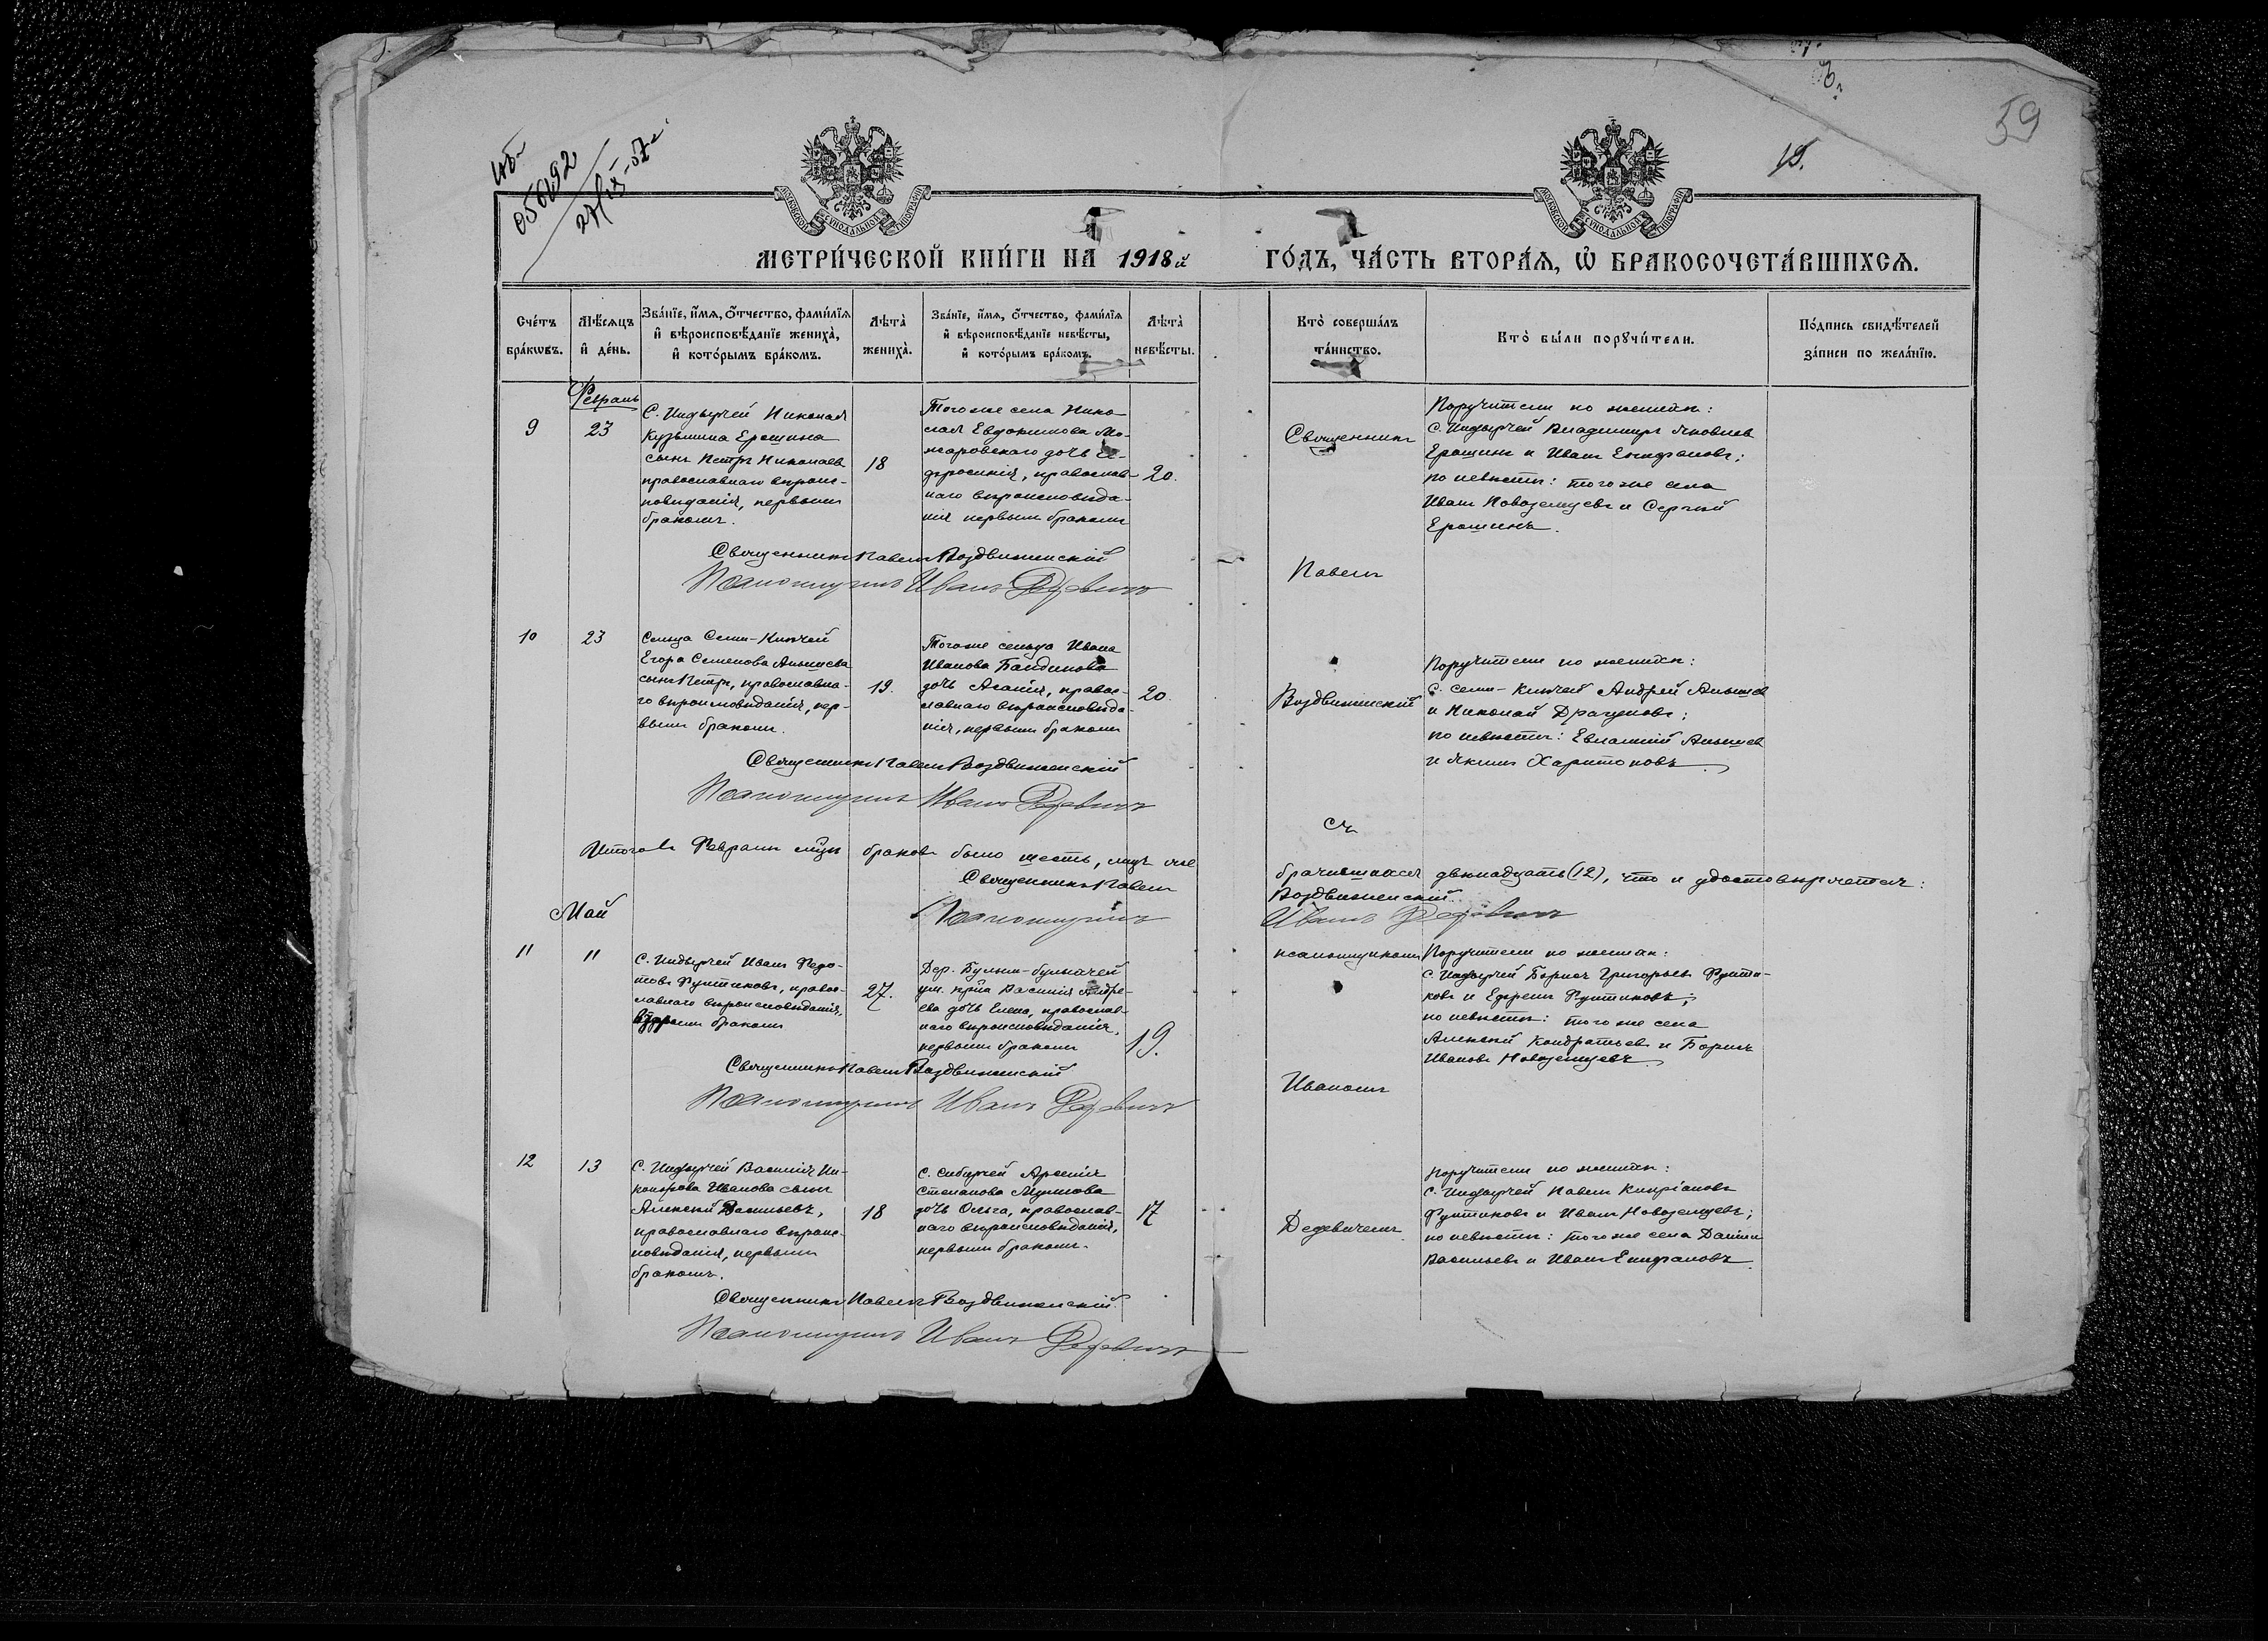 59
19.
056192
МОСКОВСКОЙ СУНОДАЛЬНОЙ ТИПОГРАФІИ
МОСКОВСКОЙ СУНОДАЛЬНОЙ ТИПОГРАФІИ
МЕТРИ́ЧЕСКОЙ КНИ́ГИ НА 1918й ГО́ДЪ, ЧА́СТЬ ВТОРА́Я, Ѡ БРАКОСОЧЕТА́ВШИХСЯ.
Сче́тъ бра́кѡвъ.
Мѣ́сяцъ и де́нь.
Зва́нїе, и́мя, о́тчество, фами́лїя
и вѣроисповѣ́данїе жениха̀,
и кото́рымъ бра́комъ.
Лѣта̀ жениха̀.
Зва́нїе, и́мя, о́тчество, фами́лїя
и вѣроисповѣ́данїе невѣ́сты,
и кото́рымъ бра́комъ.
Лѣта̀ невѣ́сты.
Кто̀ соверша́лъ
та́инство.
Кто̀ бы́ли порꙋчи́тели.
По́дпись свидѣ́телей
за́писи по жела́нїю.
Февраль
9
23
С. Индырчей Николая
Кузьмина Ерошина
сынъ Петръ Николаев
православнаго вѣроис-
повѣданія, первымъ
бракомъ.
18
Того же села Нико-
лая Евдокимова Мо-
жаровскаго дочь Ев-
фросинія, православ-
наго вѣроисповѣда-
нія первымъ бракомъ
20.
Священникъ
Поручители по женихѣ:
С. Индырчей Владимиръ Яковлев
Ерошинъ и Иванъ Епифановъ;
по невѣстѣ: того же села
Иванъ Новоземцевъ и Сергѣй
Ерошинъ.
Священникъ Павелъ Воздвиженскій
Псаломщикъ Иванъ Дедевичъ
Павелъ
10
23
Сельца Семи-Ключей
Егора Семенова Анышева
сынъ Петръ, православна-
го вѣроисповѣданія, пер-
вымъ бракомъ.
19.
Того же сельца Ивана
Иванова
дочь Агапія, право-
славнаго вѣроисповѣда-
нія, первымъ бракомъ
20.
Воздвиженскій
Поручители по женихѣ:
С. Семи-Ключей Андрей Анышев
и Николай Драгуновъ;
по невѣстѣ: Евлампій Анышев
и Якимъ Харитоновъ.
Священникъ Павелъ Воздвиженскій
Псаломщикъ Иванъ Дедевичъ
съ
Итого въ Февралѣ мцѣ браковъ было шесть, лицъ же
брачившихся двѣнадцать (12), что и удостовѣряется:
Священникъ Павелъ Воздвиженскій.
Псаломщикъ Иванъ Дедевичъ
Май
11
11
С. Индырчей Иванъ Федо-
товъ Фунтиковъ, право-
славнаго вѣроисповѣданія,
вторымъ бракомъ
27.
Дер. Булым-булыхчей
ум. кр–на Василія Андре-
ева дочь Елена, православ-
наго вѣроисповѣданія,
первымъ бракомъ
19.
псаломщикомъ
Поручители по женихѣ:
С. Индырчей Борисъ Григорьевъ Фунти-
ковъ и Ефремъ Фунтиковъ;
по невѣстѣ: того же села
Алексѣй Кондратьевъ и Борисъ
Ивановъ Новоземцевъ.
Священникъ Павелъ Воздвиженскій
Псаломщикъ Иванъ Дедевичъ
Иваномъ
12
13
С. Индырчей Василія Ни-
канорова Иванова сынъ
Алексѣй Васильевъ,
православнаго вѣроис-
повѣданія, первымъ
бракомъ.
18
С. Сибирчей Арсенія
Степанова
дочь Ольга, православ-
наго вѣроисповѣданія,
первымъ бракомъ.
17
Дедевичемъ.
Поручители по женихѣ:
С. Индырчей Павелъ Кипріановъ
Фунтиковъ и Иванъ Новоземцевъ;
по невѣстѣ: того же села Даніилъ
Васильевъ и Иванъ Епифановъ.
Священникъ Павелъ Воздвиженскій.
Псаломщикъ Иванъ Дедевичъ